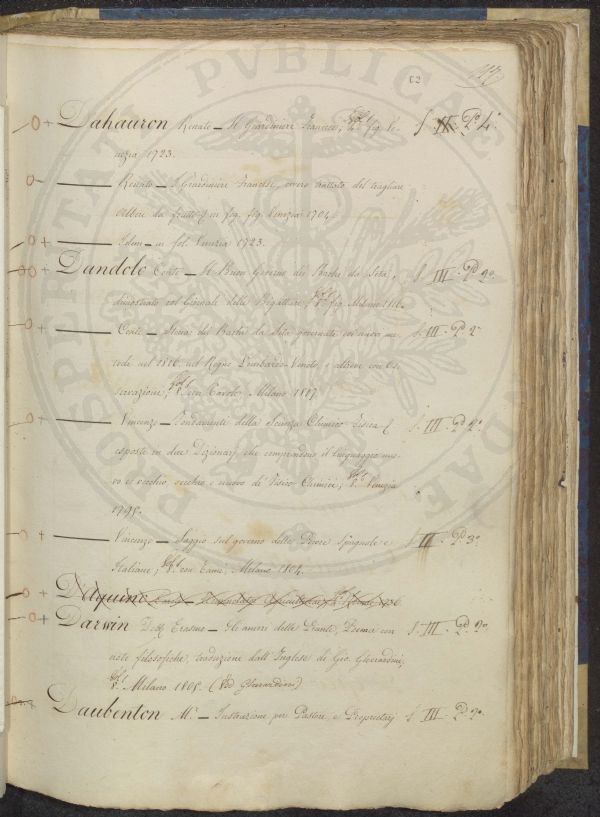 PROSPERITATI PUBLICAE
62
Dahauron Renato — Il Giardiniere Francese, fig. Ve-
nezia 1723.
Renato — Giardiniere Francese, ovvero trattato del tagliare
Alberi da frutto fig. Venezia 1704.
Idem — in fol. Venezia 1723.
Dandolo Conte — Il Buon Governo dei Bachi da Seta, III. P. 2.a
dimostrato col Giornale delle Bigattiere, fig. Milano 1816.
Conte — Storia dei Bachi da Seta governati coi nuovi me- III. P. 2.
todi nel 1816 nel Regno Lombardo-Veneto, e altrove con Os-
servazioni; con Tavole Milano 1817.
Vincenzo — Fondamenti della Scienza Chimico-Fisica III. P. 2.a
esposti in due Dizionarj che comprendono il linguaggio nuo-
vo e vecchio, vecchio e nuovo de' Fisico-Chimici; Venezia
1795.
Vincenzo — Saggio sul governo delle Pecore Spagnole e III. P. 3.a
Italiane; con Rami Milano 1804.
D'Aquino
Darwin Erasmo — Gli amori delle Piante, Poema con III. P. 2.a
note filosofiche, traduzione dall'Inglese di Gio. Gherardini;
8.° Milano 1805. (Ved. Gherardini)
Daubenton M.r — Instruzione per Pastori e Proprietarj III. P. 2.a